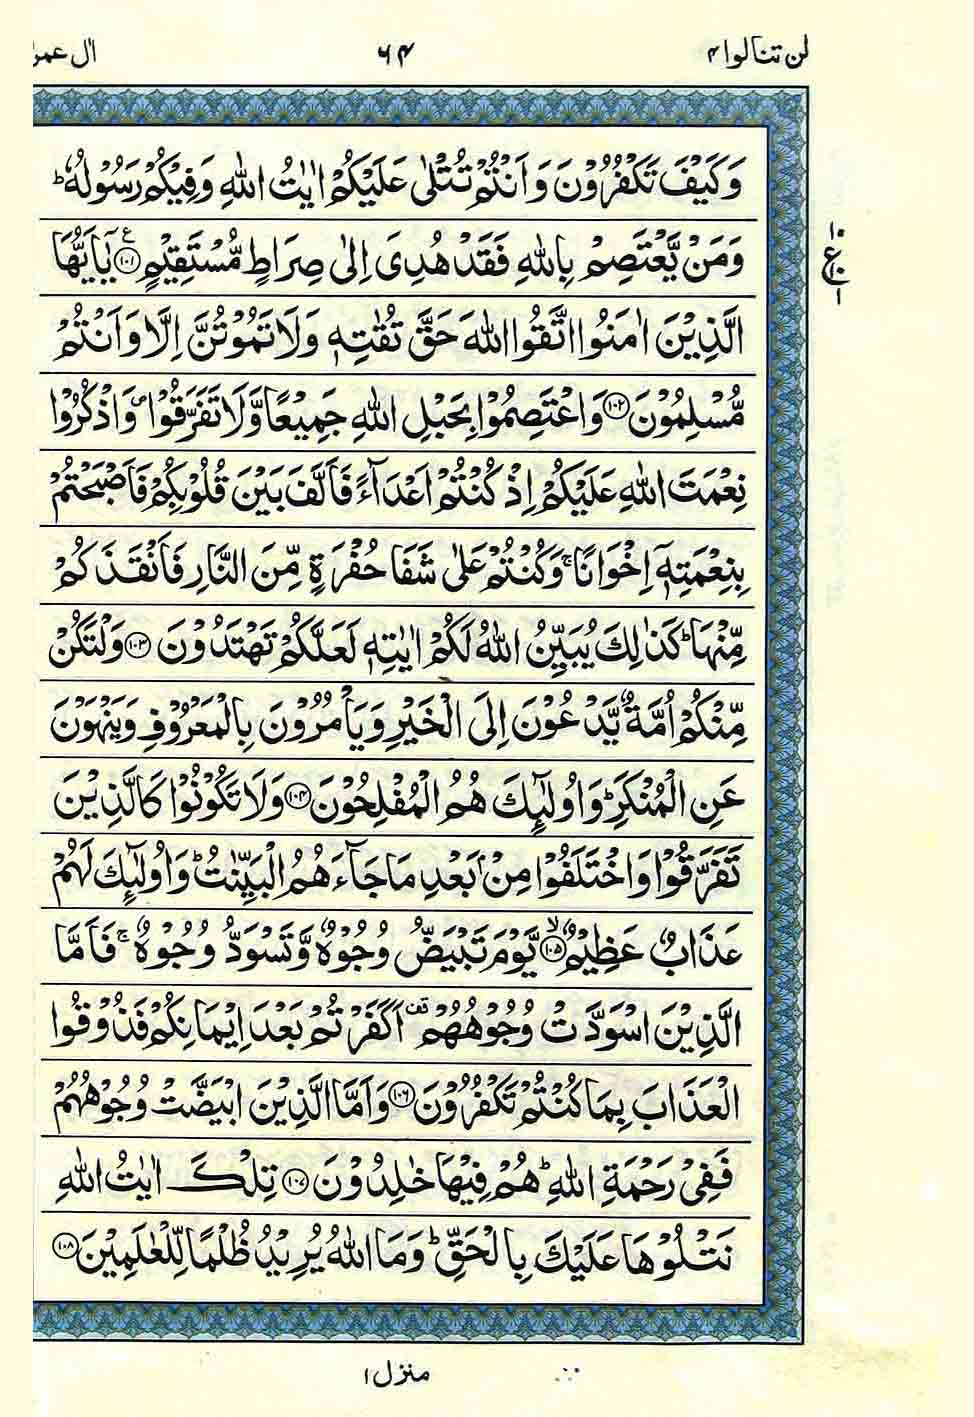 لن تنالوا ۴
۶۴
اٰل عمرٰ
وَكَيْفَ تَكْفُرُوْنَ وَاَنْتُمْ تُتْلٰى عَلَيْكُمْ اٰيٰتُ اللّٰهِ وَفِيْكُمْ رَسُوْلُهٗ ؕ
وَمَنْ يَّعْتَصِمْ بِاللّٰهِ فَقَدْ هُدِىَ اِلٰى صِرَاطٍ مُّسْتَقِيْمٍ ۧ ﴿۱۰۱﴾ يٰۤاَيُّهَا
۱۰
ع
۱۰
۱
الَّذِيْنَ اٰمَنُوا اتَّقُوا اللّٰهَ حَقَّ تُقٰتِهٖ وَلَا تَمُوْتُنَّ اِلَّا وَاَنْتُمْ
مُّسْلِمُوْنَ ﴿۱۰۲﴾ وَاعْتَصِمُوْا بِحَبْلِ اللّٰهِ جَمِيْعًا وَّلَا تَفَرَّقُوْا ۪ وَاذْكُرُوْا
نِعْمَتَ اللّٰهِ عَلَيْكُمْ اِذْ كُنْتُمْ اَعْدَآءً فَاَلَّفَ بَيْنَ قُلُوْبِكُمْ فَاَصْبَحْتُمْ
بِنِعْمَتِهٖۤ اِخْوَانًا ۚ وَكُنْتُمْ عَلٰى شَفَا حُفْرَةٍ مِّنَ النَّارِ فَاَنْقَذَكُمْ
مِّنْهَا ؕ كَذٰلِكَ يُبَيِّنُ اللّٰهُ لَكُمْ اٰيٰتِهٖ لَعَلَّكُمْ تَهْتَدُوْنَ ﴿۱۰۳﴾ وَلْتَكُنْ
مِّنْكُمْ اُمَّةٌ يَّدْعُوْنَ اِلَى الْخَيْرِ وَيَاْمُرُوْنَ بِالْمَعْرُوْفِ وَيَنْهَوْنَ
عَنِ الْمُنْكَرِ ؕ وَاُولٰٓئِكَ هُمُ الْمُفْلِحُوْنَ ﴿۱۰۴﴾ وَلَا تَكُوْنُوْا كَالَّذِيْنَ
تَفَرَّقُوْا وَاخْتَلَفُوْا مِنْۢ بَعْدِ مَا جَآءَهُمُ الْبَيِّنٰتُ ؕ وَاُولٰٓئِكَ لَهُمْ
عَذَابٌ عَظِيْمٌ ۙ ﴿۱۰۵﴾ يَّوْمَ تَبْيَضُّ وُجُوْهٌ وَّتَسْوَدُّ وُجُوْهٌ ۚ فَاَمَّا
الَّذِيْنَ اسْوَدَّتْ وُجُوْهُهُمْ قف اَكَفَرْتُمْ بَعْدَ اِيْمَانِكُمْ فَذُوْقُوا
الْعَذَابَ بِمَا كُنْتُمْ تَكْفُرُوْنَ ﴿۱۰۶﴾ وَاَمَّا الَّذِيْنَ ابْيَضَّتْ وُجُوْهُهُمْ
فَفِىْ رَحْمَةِ اللّٰهِ ؕ هُمْ فِيْهَا خٰلِدُوْنَ ﴿۱۰۷﴾ تِلْكَ اٰيٰتُ اللّٰهِ
نَتْلُوْهَا عَلَيْكَ بِالْحَقِّ ؕ وَمَا اللّٰهُ يُرِيْدُ ظُلْمًا لِّلْعٰلَمِيْنَ ﴿۱۰۸﴾
منزل ۱